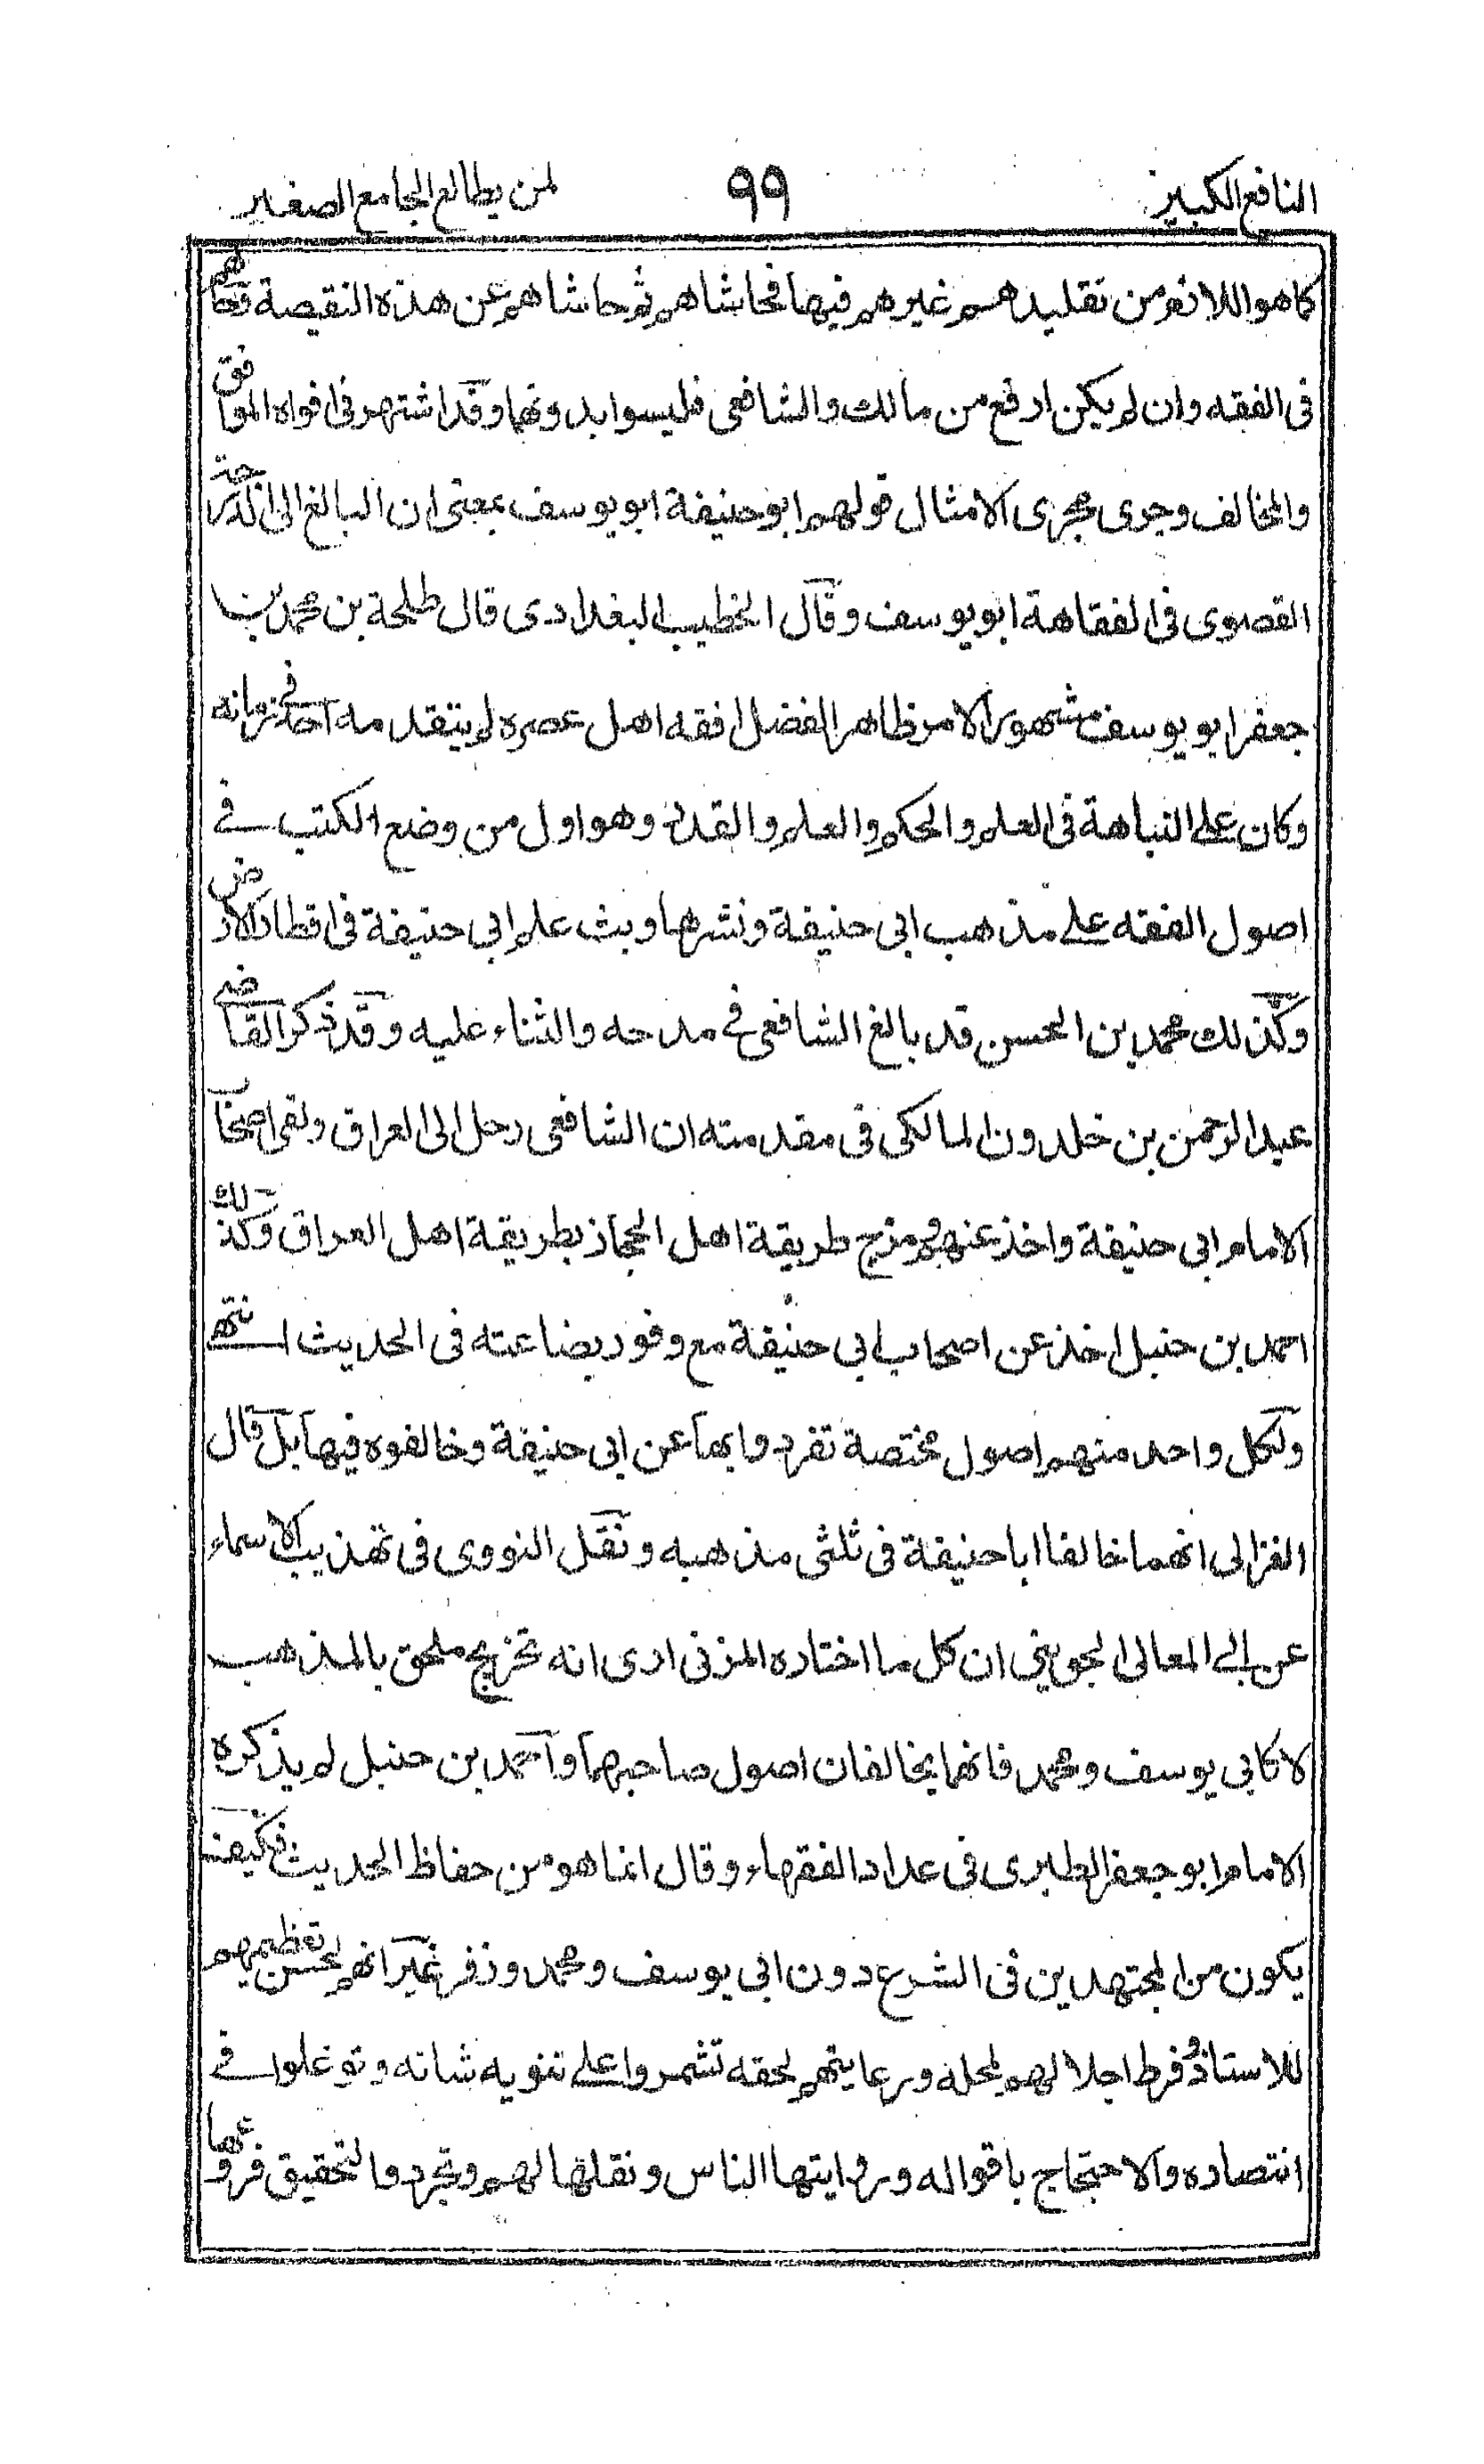 النافع الكبير ٩٩ لمن يطالع الجامع الصغير
كما هو اللازم من تقليدهم غيرهم فيها فحاشاهم ثم حاشاهم عن هذه النقيصة فحالهم
فى الفقه وان لم يكن ارفع من مالك والشافعى فليسوا بدونهما وقد اشتهر فى افواه الموافق
والمخالف وجرى مجرى الامثال قولهم ابو حنيفة ابو يوسف بمعنى ان البالغ الى الدرجة
القصوى فى الفقاهة ابو يوسف وقال الخطيب البغدادى قال طلحة بن محمد بن
جعفر ابو يوسف مشهور الامر ظاهر الفضل افقه اهل عصره لم يتقدمه احد فى زمانه
وكان على النباهة فى العلم والحكم والعلم والقدر وهو اول من وضع الكتب فى
اصول الفقه على مذهب ابى حنيفة ونشرها وبث علم ابى حنيفة فى اقطار الارض
وكذلك محمد بن الحسن قد بالغ الشافعى فى مدحه والثناء عليه وقد ذكر القاضى
عبد الرحمن بن خلدون المالكى فى مقدمته ان الشافعى رحل الى العراق ولقى اصحاب
الامام ابى حنيفة واخذ عنهم ومزج طريقة اهل الحجاز بطريقة اهل العراق وكذلك
احمد بن حنبل اخذ عن اصحاب ابى حنيفة مع وفور بضاعته فى الحديث انتهى
ولكل واحد منهم اصول مختصة تفردوا بها عن ابى حنيفة وخالفوه فيها بل قال
الغزالى انهما خالفا ابا حنيفة فى ثلثى مذهبه ونقل النووى فى تهذيب الاسماء
عن ابى المعالى الجوينى ان كل ما اختاره المزنى ارى انه تخريج ملحق بالمذهب
لا كابى يوسف ومحمد فانهما يخالفان اصول صاحبهما واحمد بن حنبل لم يذكره
الامام ابو جعفر الطبرى فى عداد الفقهاء وقال انما هو من حفاظ الحديث فكيف
يكون من المجتهدين فى الشرع دون ابى يوسف ومحمد وزفر غير انهم لحسن تعظيمهم
للاستاذ وفرط اجلالهم لمحله ورعايتهم لحقه تشمروا على تنويه شانه وتوغلوا فى
انتصاره والاحتجاج باقواله وروايتها الناس ونقلها لهم وتجردوا لتحقيق فروعها